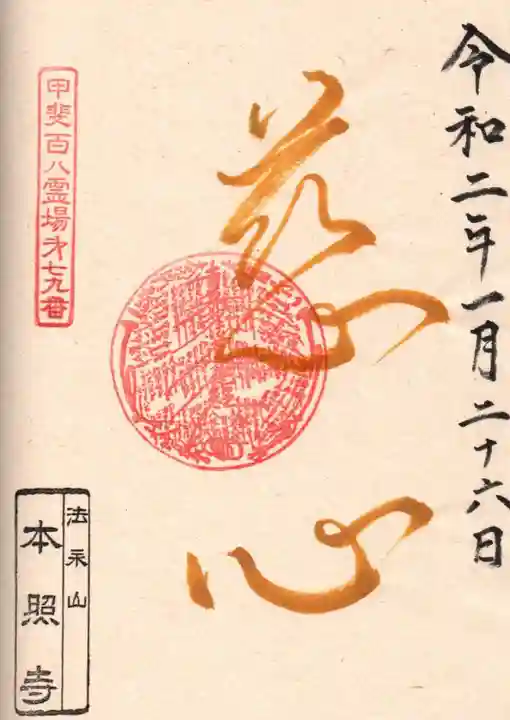 令和二年一月二十六日
慈心
甲斐百八霊場第七九番
法永山
本照寺